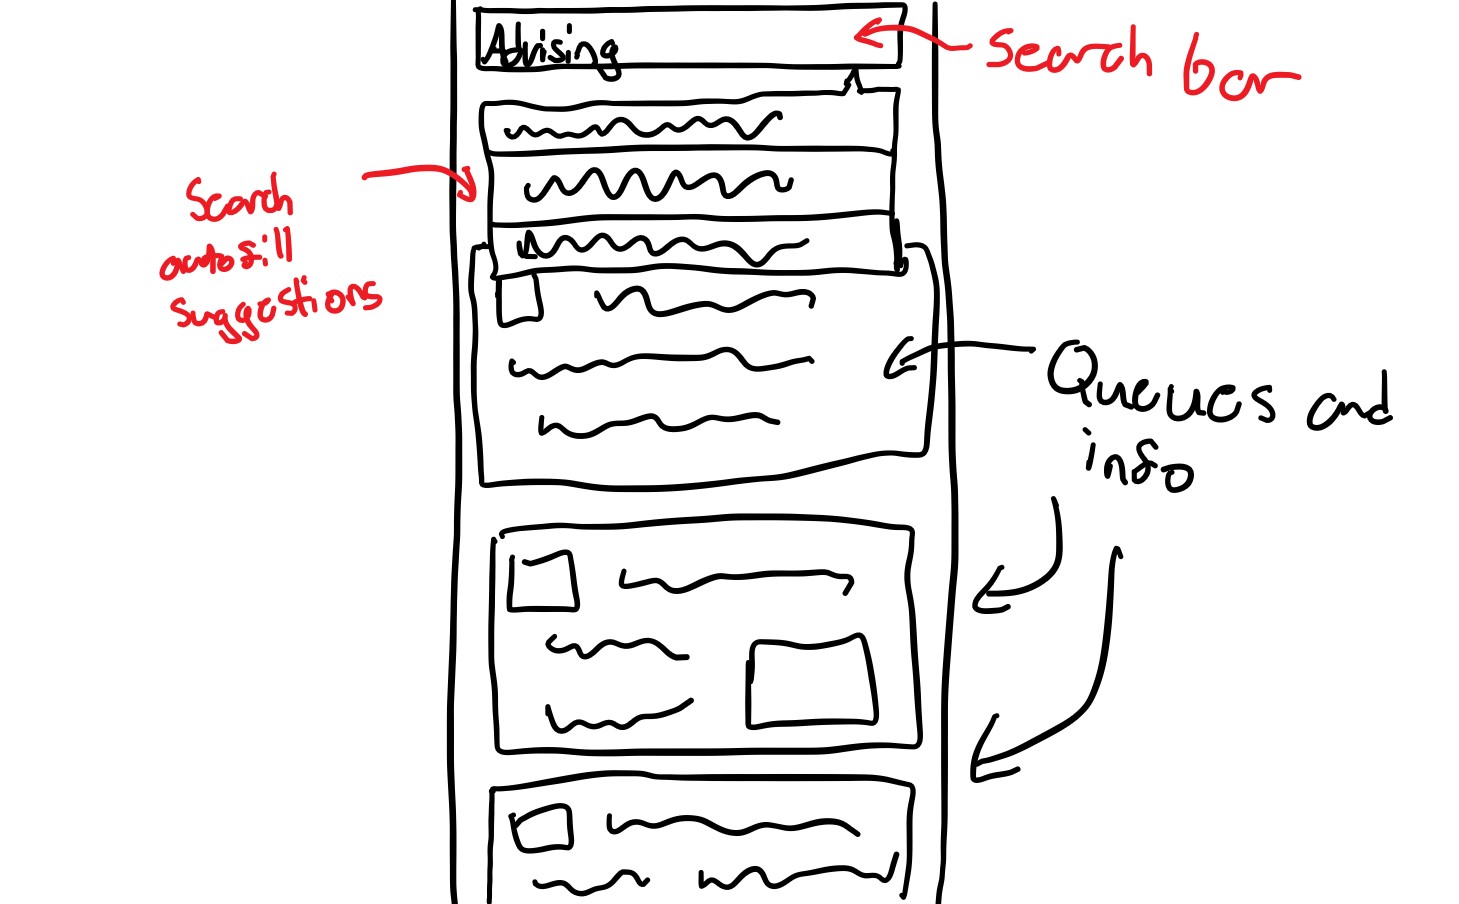 Advising
Search bar
Search
autofill
suggestions
Queues and
info